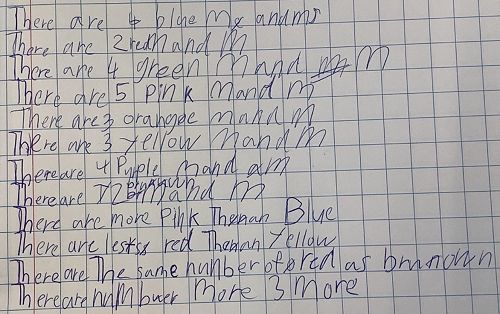 There are 4 blue Mx andms
There are 2 red Mand M
There are 4 green Mand M
There are 5 Pink Mand M
There are 3 orangee Mand M
There are 3 yellow Mand M
There are 4 Purple Mand am
There are Mand M
There are more Pink Thenan Blue
There are lestss red Thenan Yellow
There are The same number of red as brunown
There are numbuer More 3 More